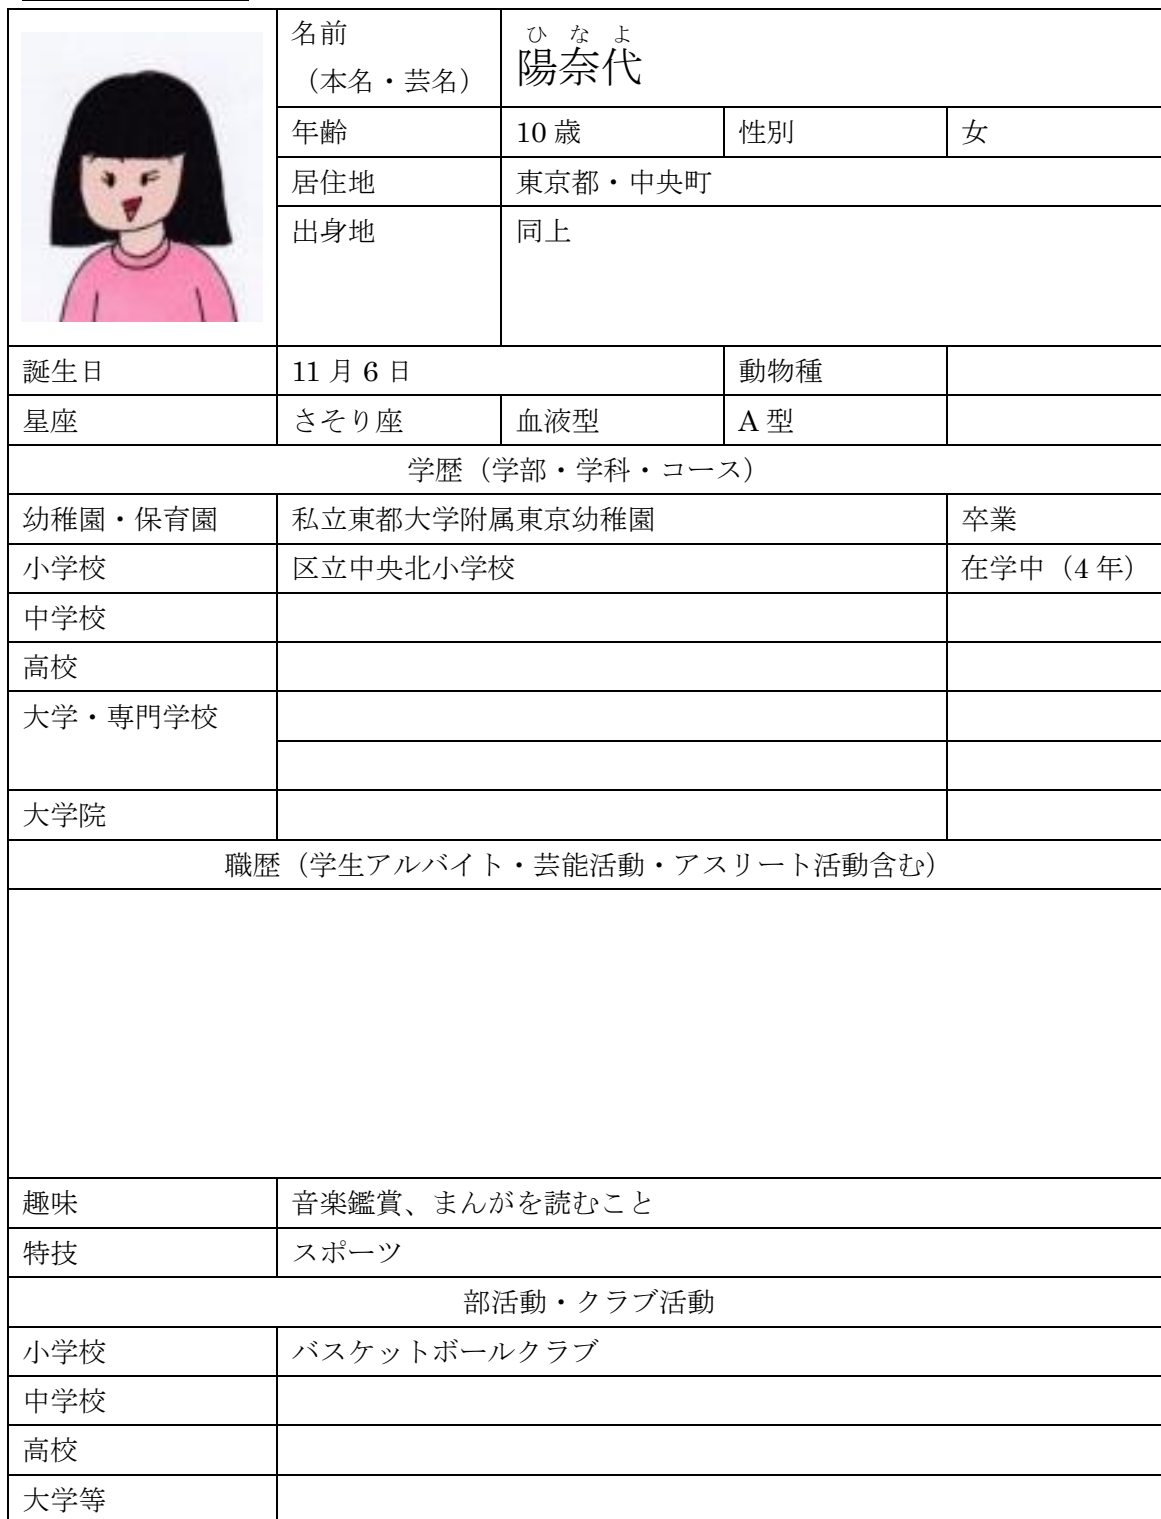 ひなよ
名前 陽奈代
（本名・芸名）
年齢 10歳 性別 女
居住地 東京都・中央町
出身地 同上
誕生日 11月6日 動物種
星座 さそり座 血液型 A型
学歴（学部・学科・コース）
幼稚園・保育園 私立東都大学附属東京幼稚園 卒業
小学校 区立中央北小学校 在学中（4年）
中学校
高校
大学・専門学校
大学院
職歴（学生アルバイト・芸能活動・アスリート活動含む）
趣味 音楽鑑賞、まんがを読むこと
特技 スポーツ
部活動・クラブ活動
小学校 バスケットボールクラブ
中学校
高校
大学等